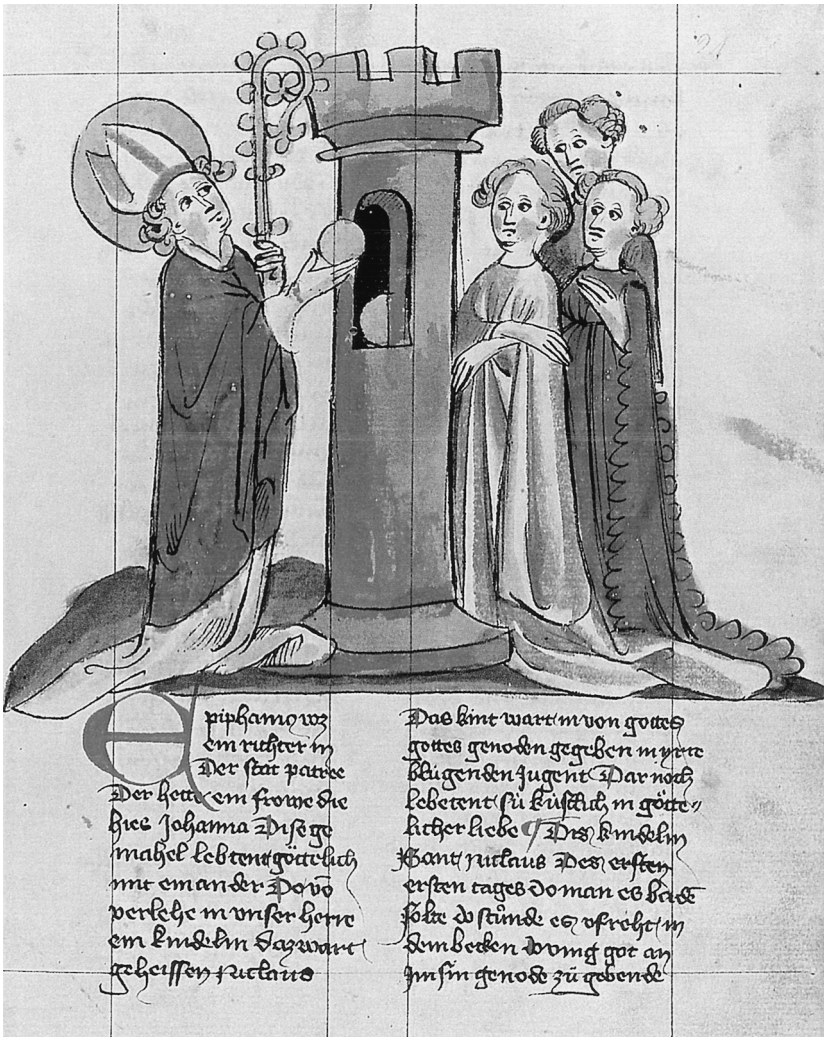 Epiphanig wz
ein richter in
Der stat patree
Der hette ein frowe die
hies Johanna Dise ge
mahel lebtent göttelich
mit einander Do vō
verlehe in unser herre
ein kindelin daz wart
geheissen Niclaus
Das kint wart in von gottes
gottes genoden gegeben in yrre
blügenden jugent Dar noch
lebetent sü küschlich in götte
licher liebe ¶ Dis kindelin
Sant niclaus Des ersten
ersten tages do man es badē
solte do stunde es ufreht in
dem becken aving got an
Im sin genode zü gebende